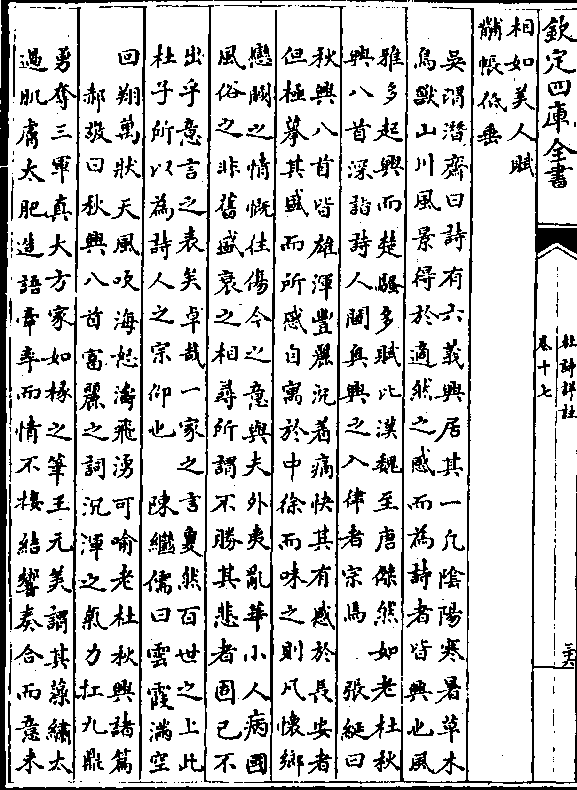 欽定四庫全書
杜詩詳註
卷十七
三六
相如美人賦
黼帳低垂
吳渭潛齋曰詩有六義興居其一凡陰陽寒暑草木
鳥獸山川風景得於適然之感而為詩者皆興也風
雅多起興而楚騷多賦比漢魏至唐傑然如老杜秋
興八首深詣詩人閫奧興之入律者宗焉　張綖曰
秋興八首皆雄渾豐麗沉着痛快其有感於長安者
但極摹其盛而所感自寓於中徐而味之則凡懷鄉
戀闕之情慨往傷今之意與夫外夷亂華小人病國
風俗之非舊盛衰之相尋所謂不勝其悲者固已不
出乎意言之表矣卓哉一家之言夐然百世之上此
杜子所以為詩人之宗仰也　陳繼儒曰雲霞滿空
回翔萬狀天風吹海怒濤飛湧可喻老杜秋興諸篇
郝敬曰秋興八首富麗之詞沉渾之氣力扛九鼎
勇奪三軍真大方家如椽之筆王元美謂其藻繡太
過肌膚太肥造語牽率而情不接結響奏合而意未